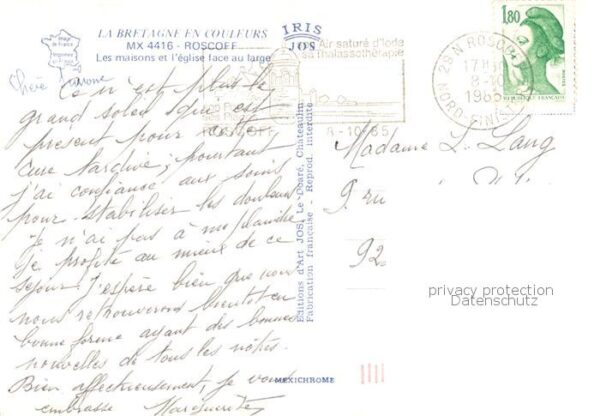 LA BRETAGNE EN COULEURS
MX 4416 - ROSCOFF
Les maisons et l'église face au large
IRIS
JOS
Air saturé d'Iode
sa thalassothérapie
ROSCOFF
8-10-85
29 N ROSCOFF
17H
8-10
1985
NORD-FINISTERE
1,80
REPUBLIQUE FRANÇAISE
Chère Yvonne
Ce n'est plus le
grand soleil qui est
présent pour cette
cure tardive; pourtant
j'ai confiance aux soins
pour stabiliser les douleurs
je n'ai pas à me plaindre
Je profite au mieux de ce
séjour j'espère bien que nous
nous retrouverons bientôt en
bonne forme ayant des bonnes
nouvelles de tous les nôtres.
Bien affectueusement, je vous
embrasse Marguerite
Editions d'Art JOS, Le Doaré, Châteaulin
Fabrication française - Reprod. interdite
MEXICHROME
Madame L. Lang
9 ru
92
privacy protection
Datenschutz